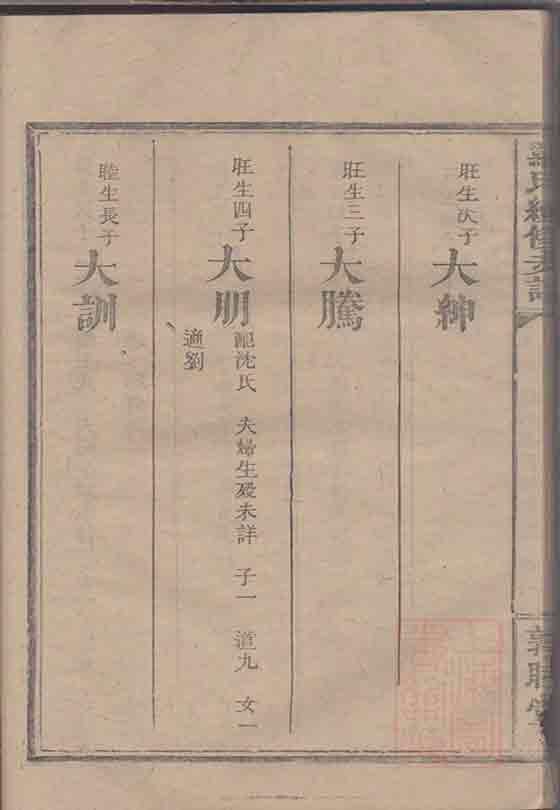 氏續修支譜
旺生次子 大紳
旺生三子 大騰
旺生四子 大明 配沈氏 夫婦生殁未詳 子一 道九 女一
適劉
睦生長子 大訓